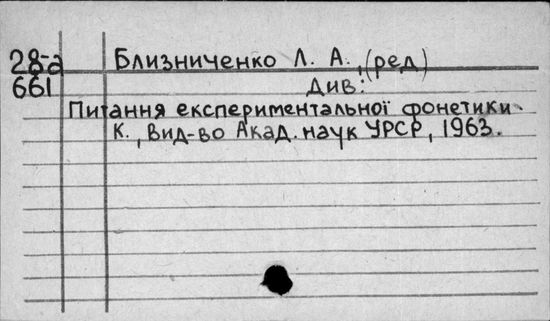 28-а
661
Близниченко Л. А., (ред)
Див:
Питання експериментальної фонетики.
К., Вид-во Акад. наук УРСР, 1963.